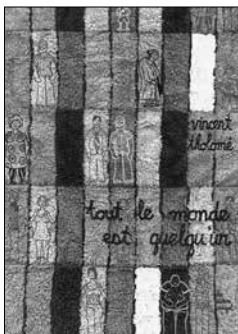 vincent
tholomé
tout le monde
est quelqu'un